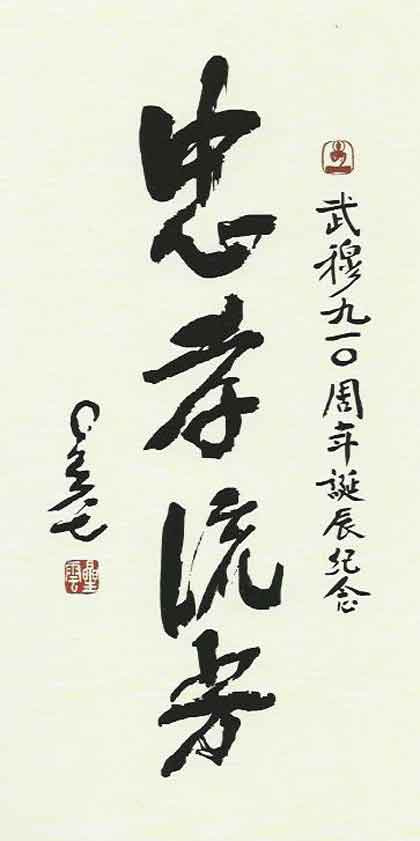 武穆九一〇周年誕辰纪念
忠孝流芳
星云